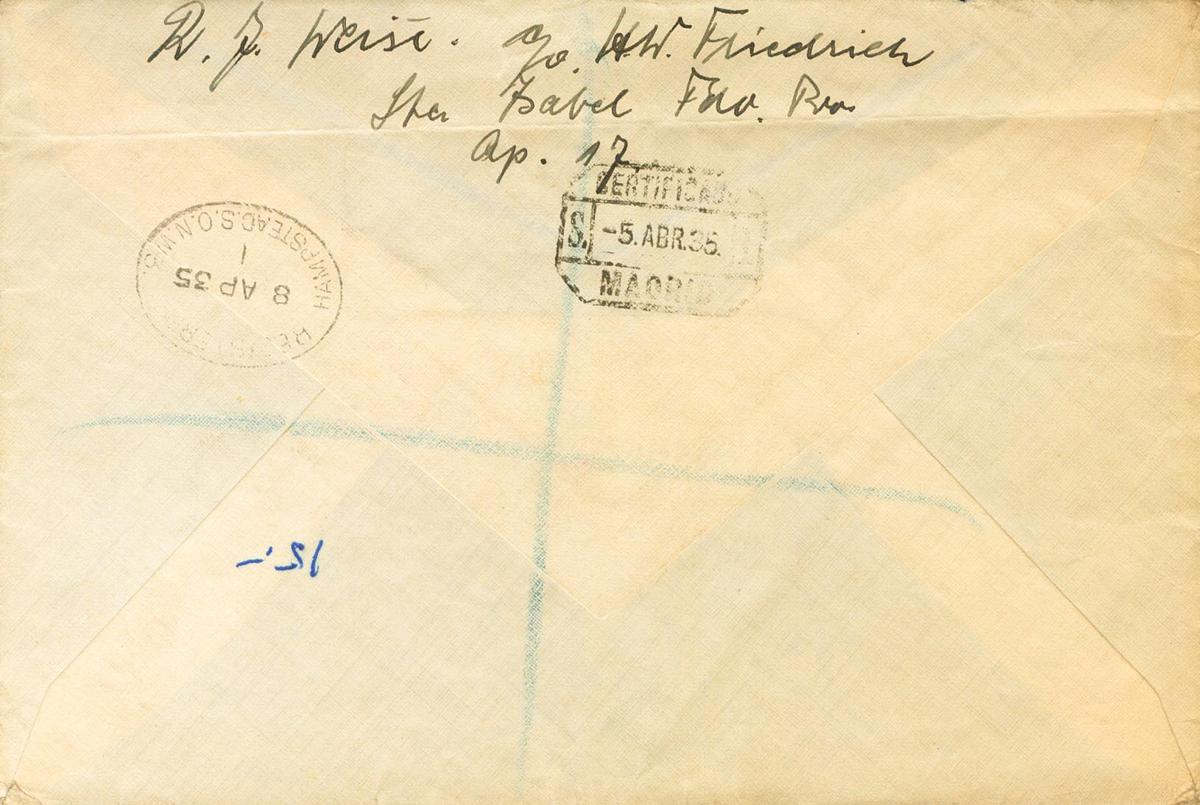 R. J. Weise. c/o. H.W. Friedrich
Sta Isabel Fdo. Poo
Ap. 17
CERTIFICADO
S. -5. ABR.35. 1
MADRID
REGISTERED
8 AP 35
1
HAMPSTEAD.S.O.N.W.3.
15.-